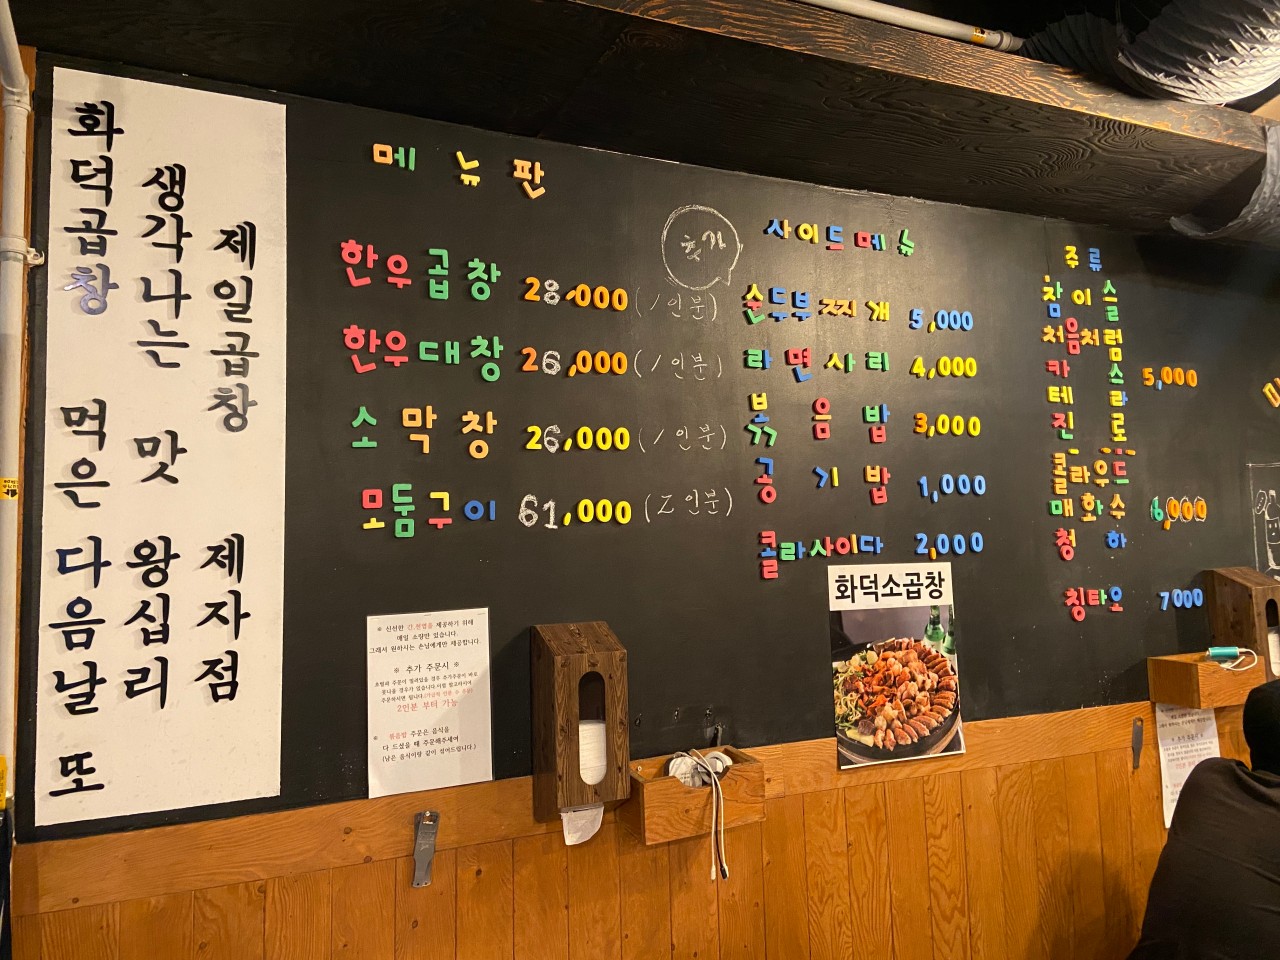 화덕곱창 먹은 다음날 또
생각나는 맛 왕십리
제일곱창 제자점
메뉴판
한우곱창 28,000 (1인분)
한우대창 26,000 (1인분)
소막창 26,000 (1인분)
모둠구이 61,000 (2인분)
추가
사이드메뉴
순두부찌개 5,000
라면사리 4,000
볶음밥 3,000
공기밥 1,000
콜라사이다 2,000
주류
참이슬
처음처럼
카스
테라
진로
5,000
클라우드
매화수 6,000
청하
칭타오 7000
화덕소곱창
※ 신선한 간,천엽을 제공하기 위해
매일 소량만 있습니다.
그래서 원하시는 손님에게만 제공합니다.
※ 추가 주문시 ※
2인분 부터 가능
※ 볶음밥 주문은 음식을
다 드셨을 때 주문해주세여
(남은 음식이랑 같이 볶아드립니다.)